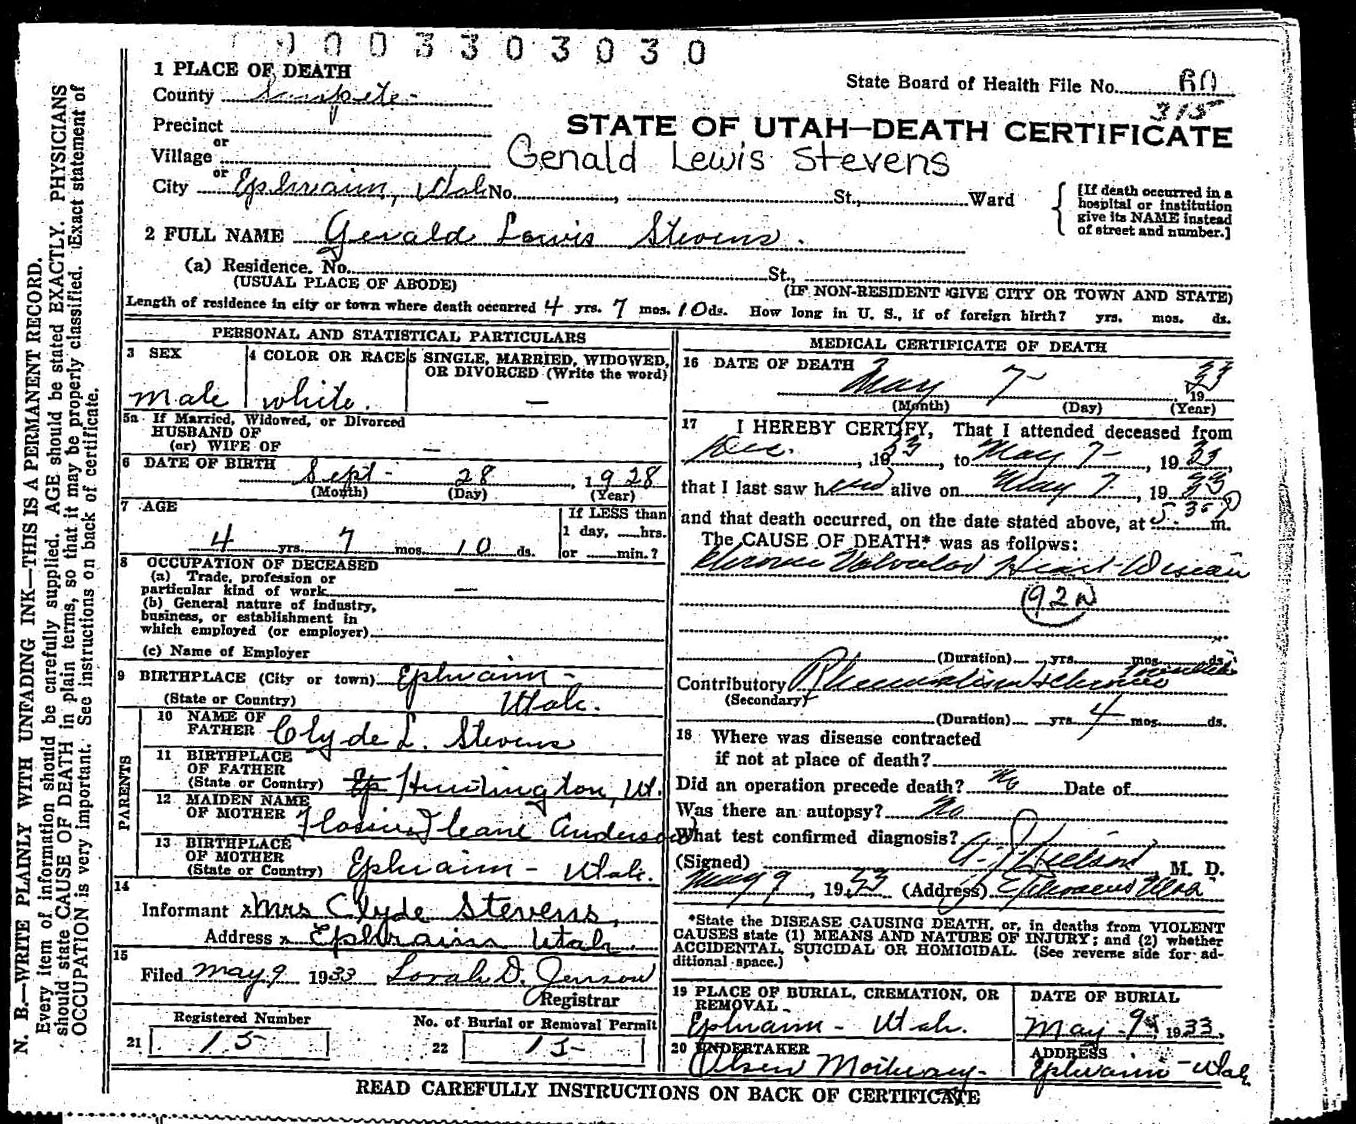 0003303030
1 PLACE OF DEATH
State Board of Health File No. 60
County Sanpete
315
Precinct
STATE OF UTAH—DEATH CERTIFICATE
or
Village
Genald Lewis Stevens
or
City Ephraim, Utah No. , St., Ward
[If death occurred in a hospital or institution give its NAME instead of street and number.]
2 FULL NAME Gerald Lewis Stevens.
(a) Residence. No. St.,
(USUAL PLACE OF ABODE) (IF NON-RESIDENT GIVE CITY OR TOWN AND STATE)
Length of residence in city or town where death occurred 4 yrs. 7 mos. 10 ds. How long in U. S., if of foreign birth? yrs. mos. ds.
PERSONAL AND STATISTICAL PARTICULARS
3 SEX
male
4 COLOR OR RACE
white.
5 SINGLE, MARRIED, WIDOWED, OR DIVORCED (Write the word)
—
5a If Married, Widowed, or Divorced
HUSBAND OF
(or) WIFE OF —
6 DATE OF BIRTH Sept - 28, 1928
(Month) (Day) (Year)
7 AGE
4 yrs. 7 mos. 10 ds.
If LESS than
1 day, hrs.
or min.?
8 OCCUPATION OF DECEASED
(a) Trade, profession or
particular kind of work —
(b) General nature of industry,
business, or establishment in
which employed (or employer)
(c) Name of Employer
9 BIRTHPLACE (City or town) Ephraim -
(State or Country) Utah.
PARENTS
10 NAME OF FATHER Clyde L. Stevens
11 BIRTHPLACE OF FATHER
(State or Country) Ep Huntington, Ut.
12 MAIDEN NAME OF MOTHER Anderson
13 BIRTHPLACE OF MOTHER
(State or Country) Ephraim - Utah.
14
Informant x Mrs Clyde Stevens,
Address x Ephraim Utah.
15
Filed May 9 1933 Lorah D. Jenson
Registrar
Registered Number No. of Burial or Removal Permit
21 15 22 15
MEDICAL CERTIFICATE OF DEATH
16 DATE OF DEATH May 7 - 1933
(Month) (Day) (Year)
17 I HEREBY CERTIFY, That I attended deceased from
Dec. , 1933, to May 7 -, 1933,
that I last saw h alive on May 7, 1933
and that death occurred, on the date stated above, at m.
The CAUSE OF DEATH* was as follows:
Chronic Valvular Heart Disease
92a
(Duration) yrs. mos. ds.
Contributory Rheumatism
(Secondary)
(Duration) yrs. 4 mos. ds.
18 Where was disease contracted
if not at place of death?
Did an operation precede death? No Date of
Was there an autopsy? No
What test confirmed diagnosis?
(Signed) Nielson M. D.
May 9, 1933 (Address) Ephraim Utah
*State the DISEASE CAUSING DEATH, or, in deaths from VIOLENT
CAUSES state (1) MEANS AND NATURE OF INJURY; and (2) whether
ACCIDENTAL, SUICIDAL OR HOMICIDAL. (See reverse side for ad-
ditional space.)
19 PLACE OF BURIAL, CREMATION, OR REMOVAL
Ephraim - Utah.
DATE OF BURIAL
May 9, 1933.
20 UNDERTAKER
Olsen Mortuary -
ADDRESS
Ephraim - Utah
READ CAREFULLY INSTRUCTIONS ON BACK OF CERTIFICATE
N. B.—WRITE PLAINLY WITH UNFADING INK—THIS IS A PERMANENT RECORD.
Every item of information should be carefully supplied. AGE should be stated EXACTLY. PHYSICIANS
should state CAUSE OF DEATH in plain terms, so that it may be properly classified. Exact statement of
OCCUPATION is very important. See instructions on back of certificate.